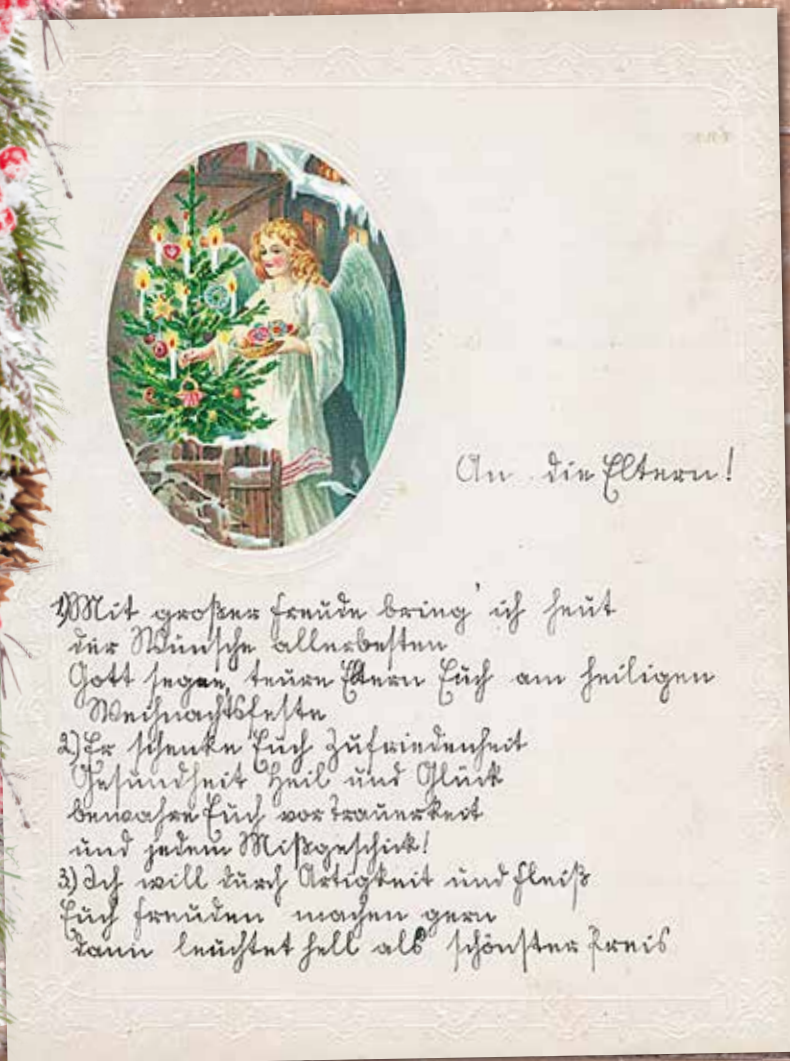 An die Eltern!
1) Mit großer Freude bring' ich heut
der Wünsche allerbesten
Gott segne, teure Eltern Euch am heiligen
Weihnachtsfeste
2) Er schenke Euch Zufriedenheit
Gesundheit Heil und Glück
bewahre Euch vor Trauerkeit
und jedem Mißgeschick!
3) Ich will durch Artigkeit und Fleiß
Euch Freuden machen gern
dann leuchtet hell als schönster Preis